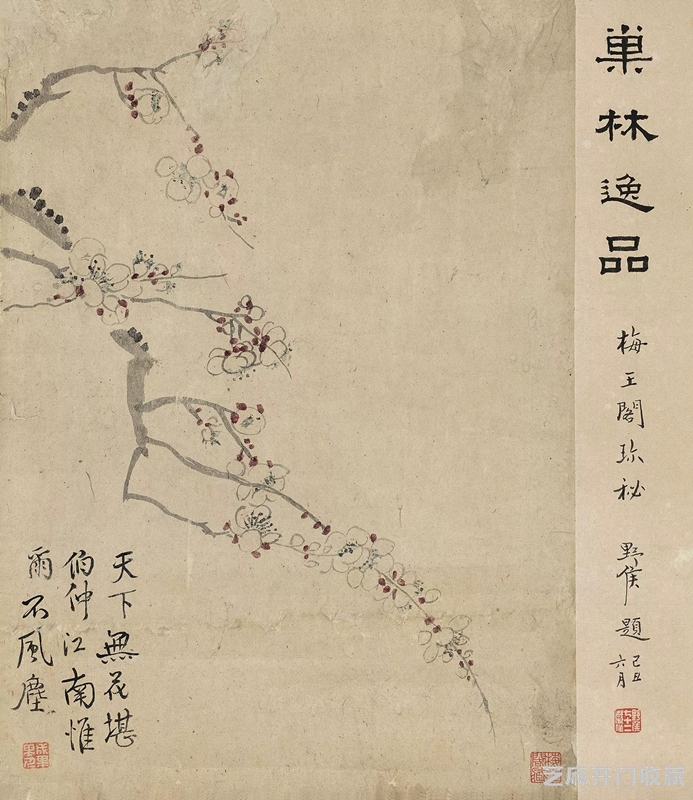 巢林逸品
梅王閣珍秘 野侯題
己丑
六月
天下無花堪
伯仲江南惟
爾不風塵
芝麻开门收藏